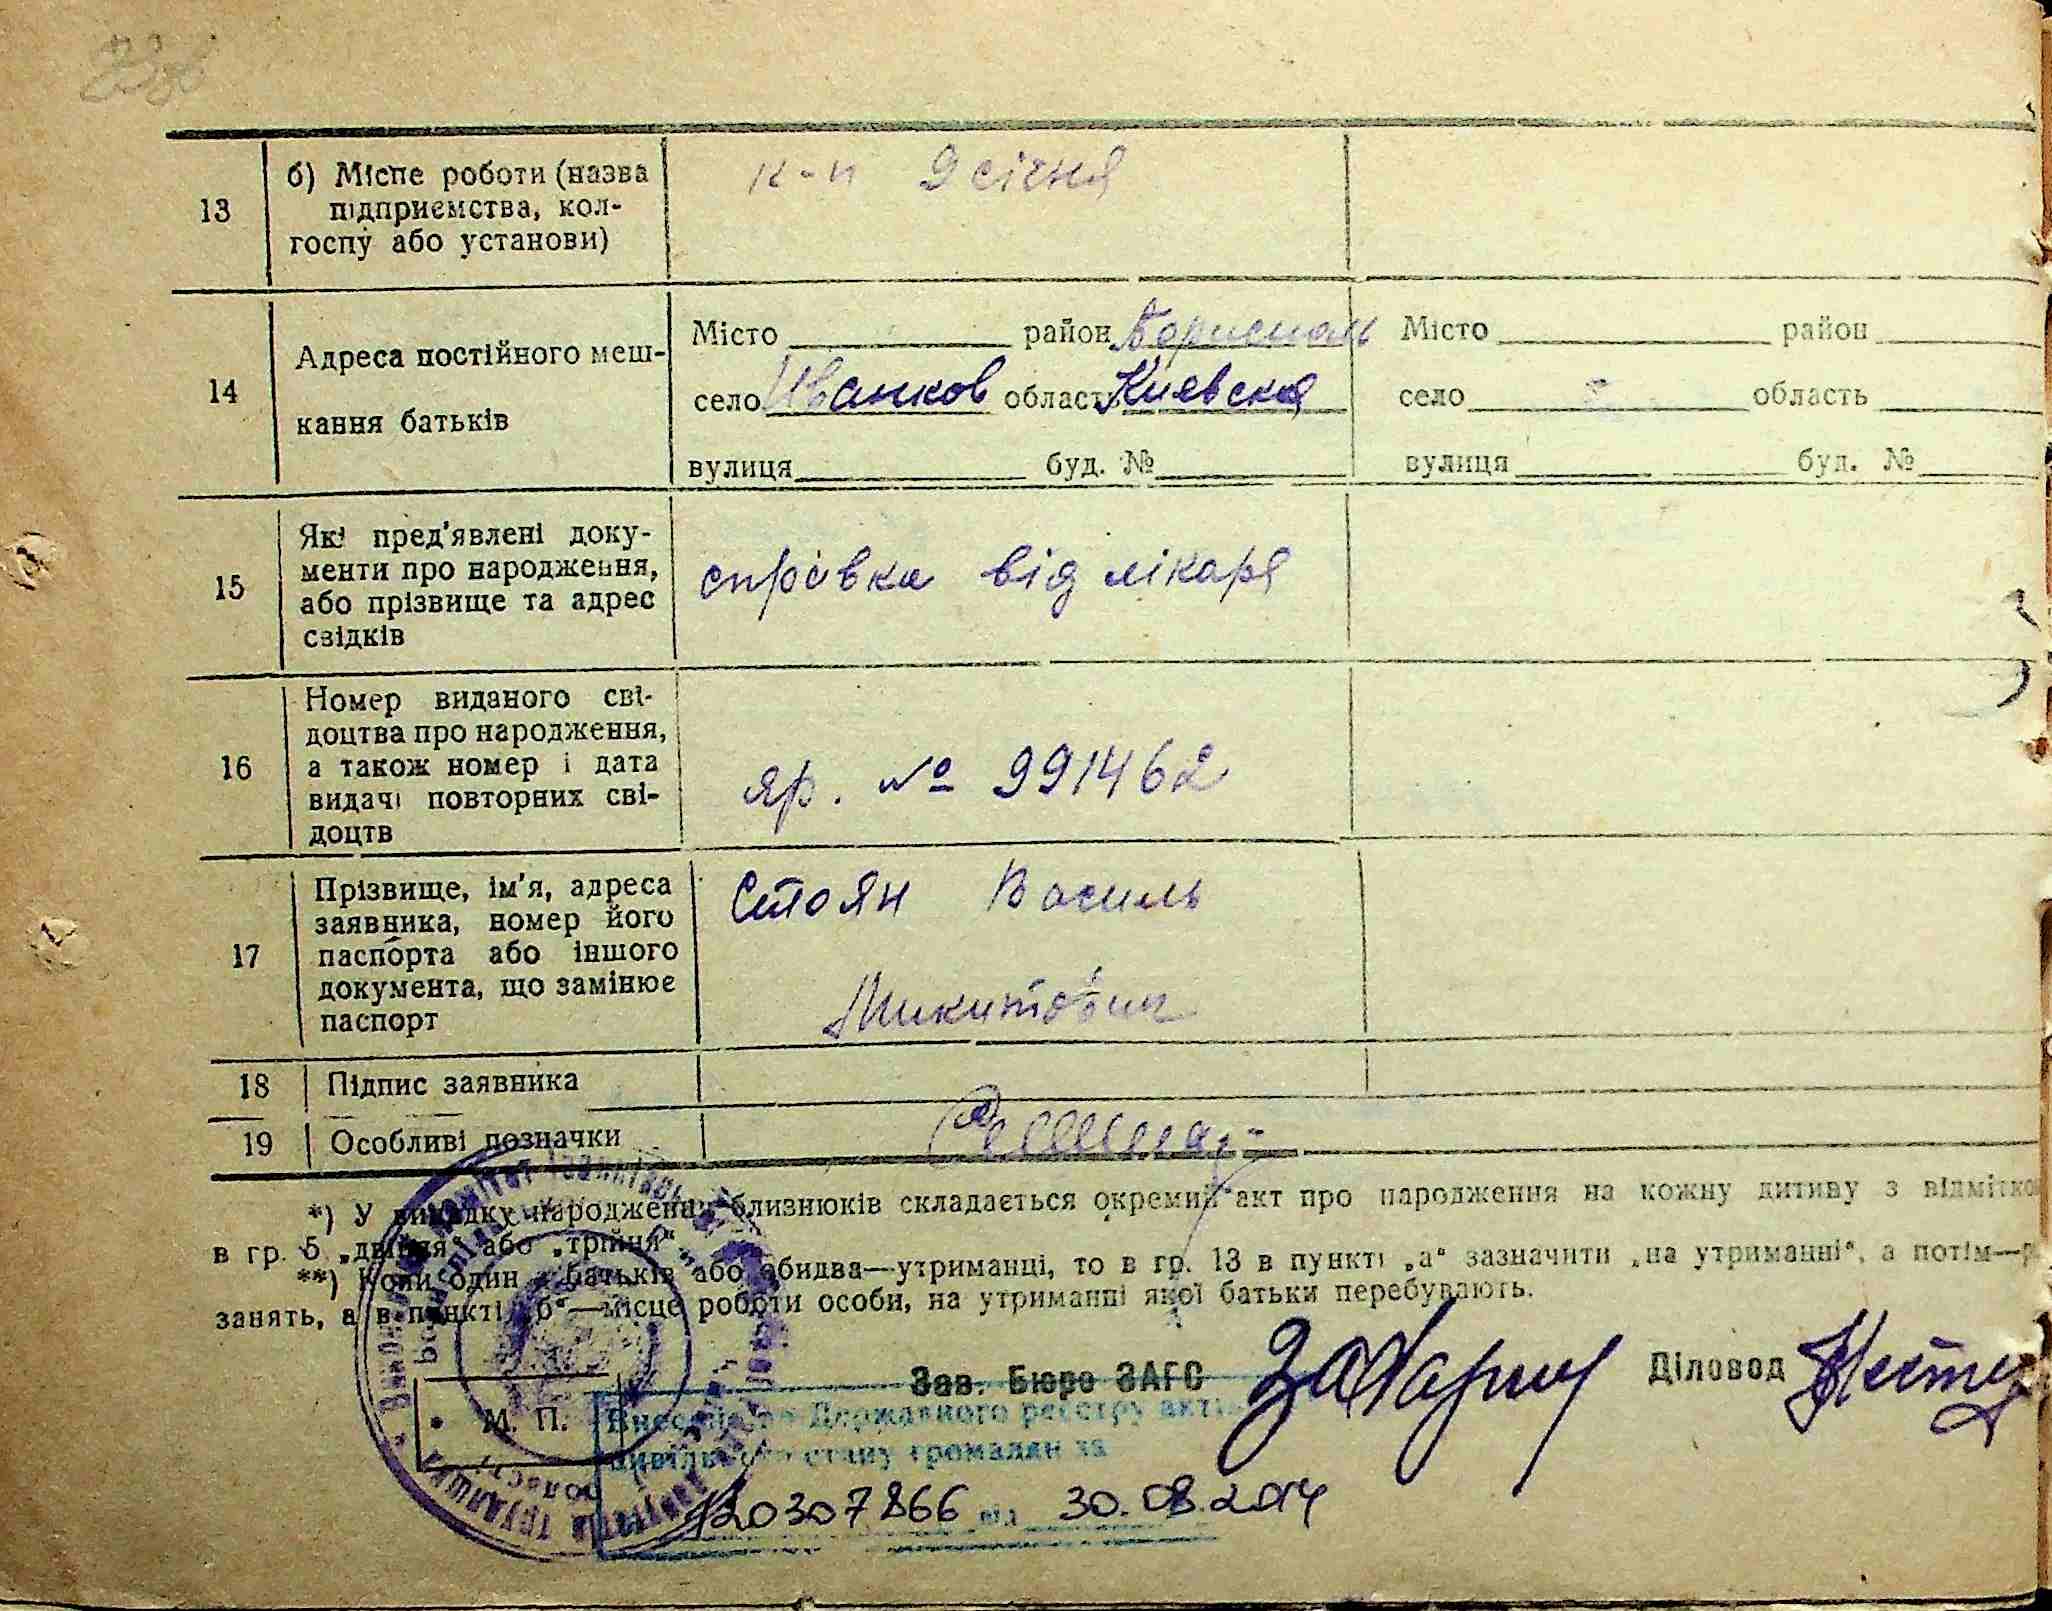 13
б) Місце роботи (назва
підприємства, кол-
госпу або установи)
к-п 9 січня
14
Адреса постійного меш-
кання батьків
Місто район Бориспол
село Иванков область Киевска
вулиця буд. №
Місто район
село область
вулиця буд. №
15
Які пред'явлені доку-
менти про народження,
або прізвище та адрес
свідків
справка від лікаря
16
Номер виданого сві-
доцтва про народження,
а також номер і дата
видачі повторних сві-
доцтв
яр. № 991462
17
Прізвище, ім'я, адреса
заявника, номер його
паспорта або іншого
документа, що замінює
паспорт
Стоян Василь
Микитович
18
Підпис заявника
19
Особливі позначки
*) У випадку народження близнюків складається окремий акт про народження на кожну дитину з відміткою
в гр. 5 „двійня“ або „трійня“.
**) Коли один з батьків або обидва—утриманці, то в гр. 13 в пункті „а“ зазначити „на утриманні“, а потім—р
занять, а в пункті „б“—місце роботи особи, на утриманні якої батьки перебувають.
Зав. Бюро ЗАГС
Діловод
М. П.
Внесено до Державного реєстру актів
цивільного стану громадян за
20307866 від 30.08.2014